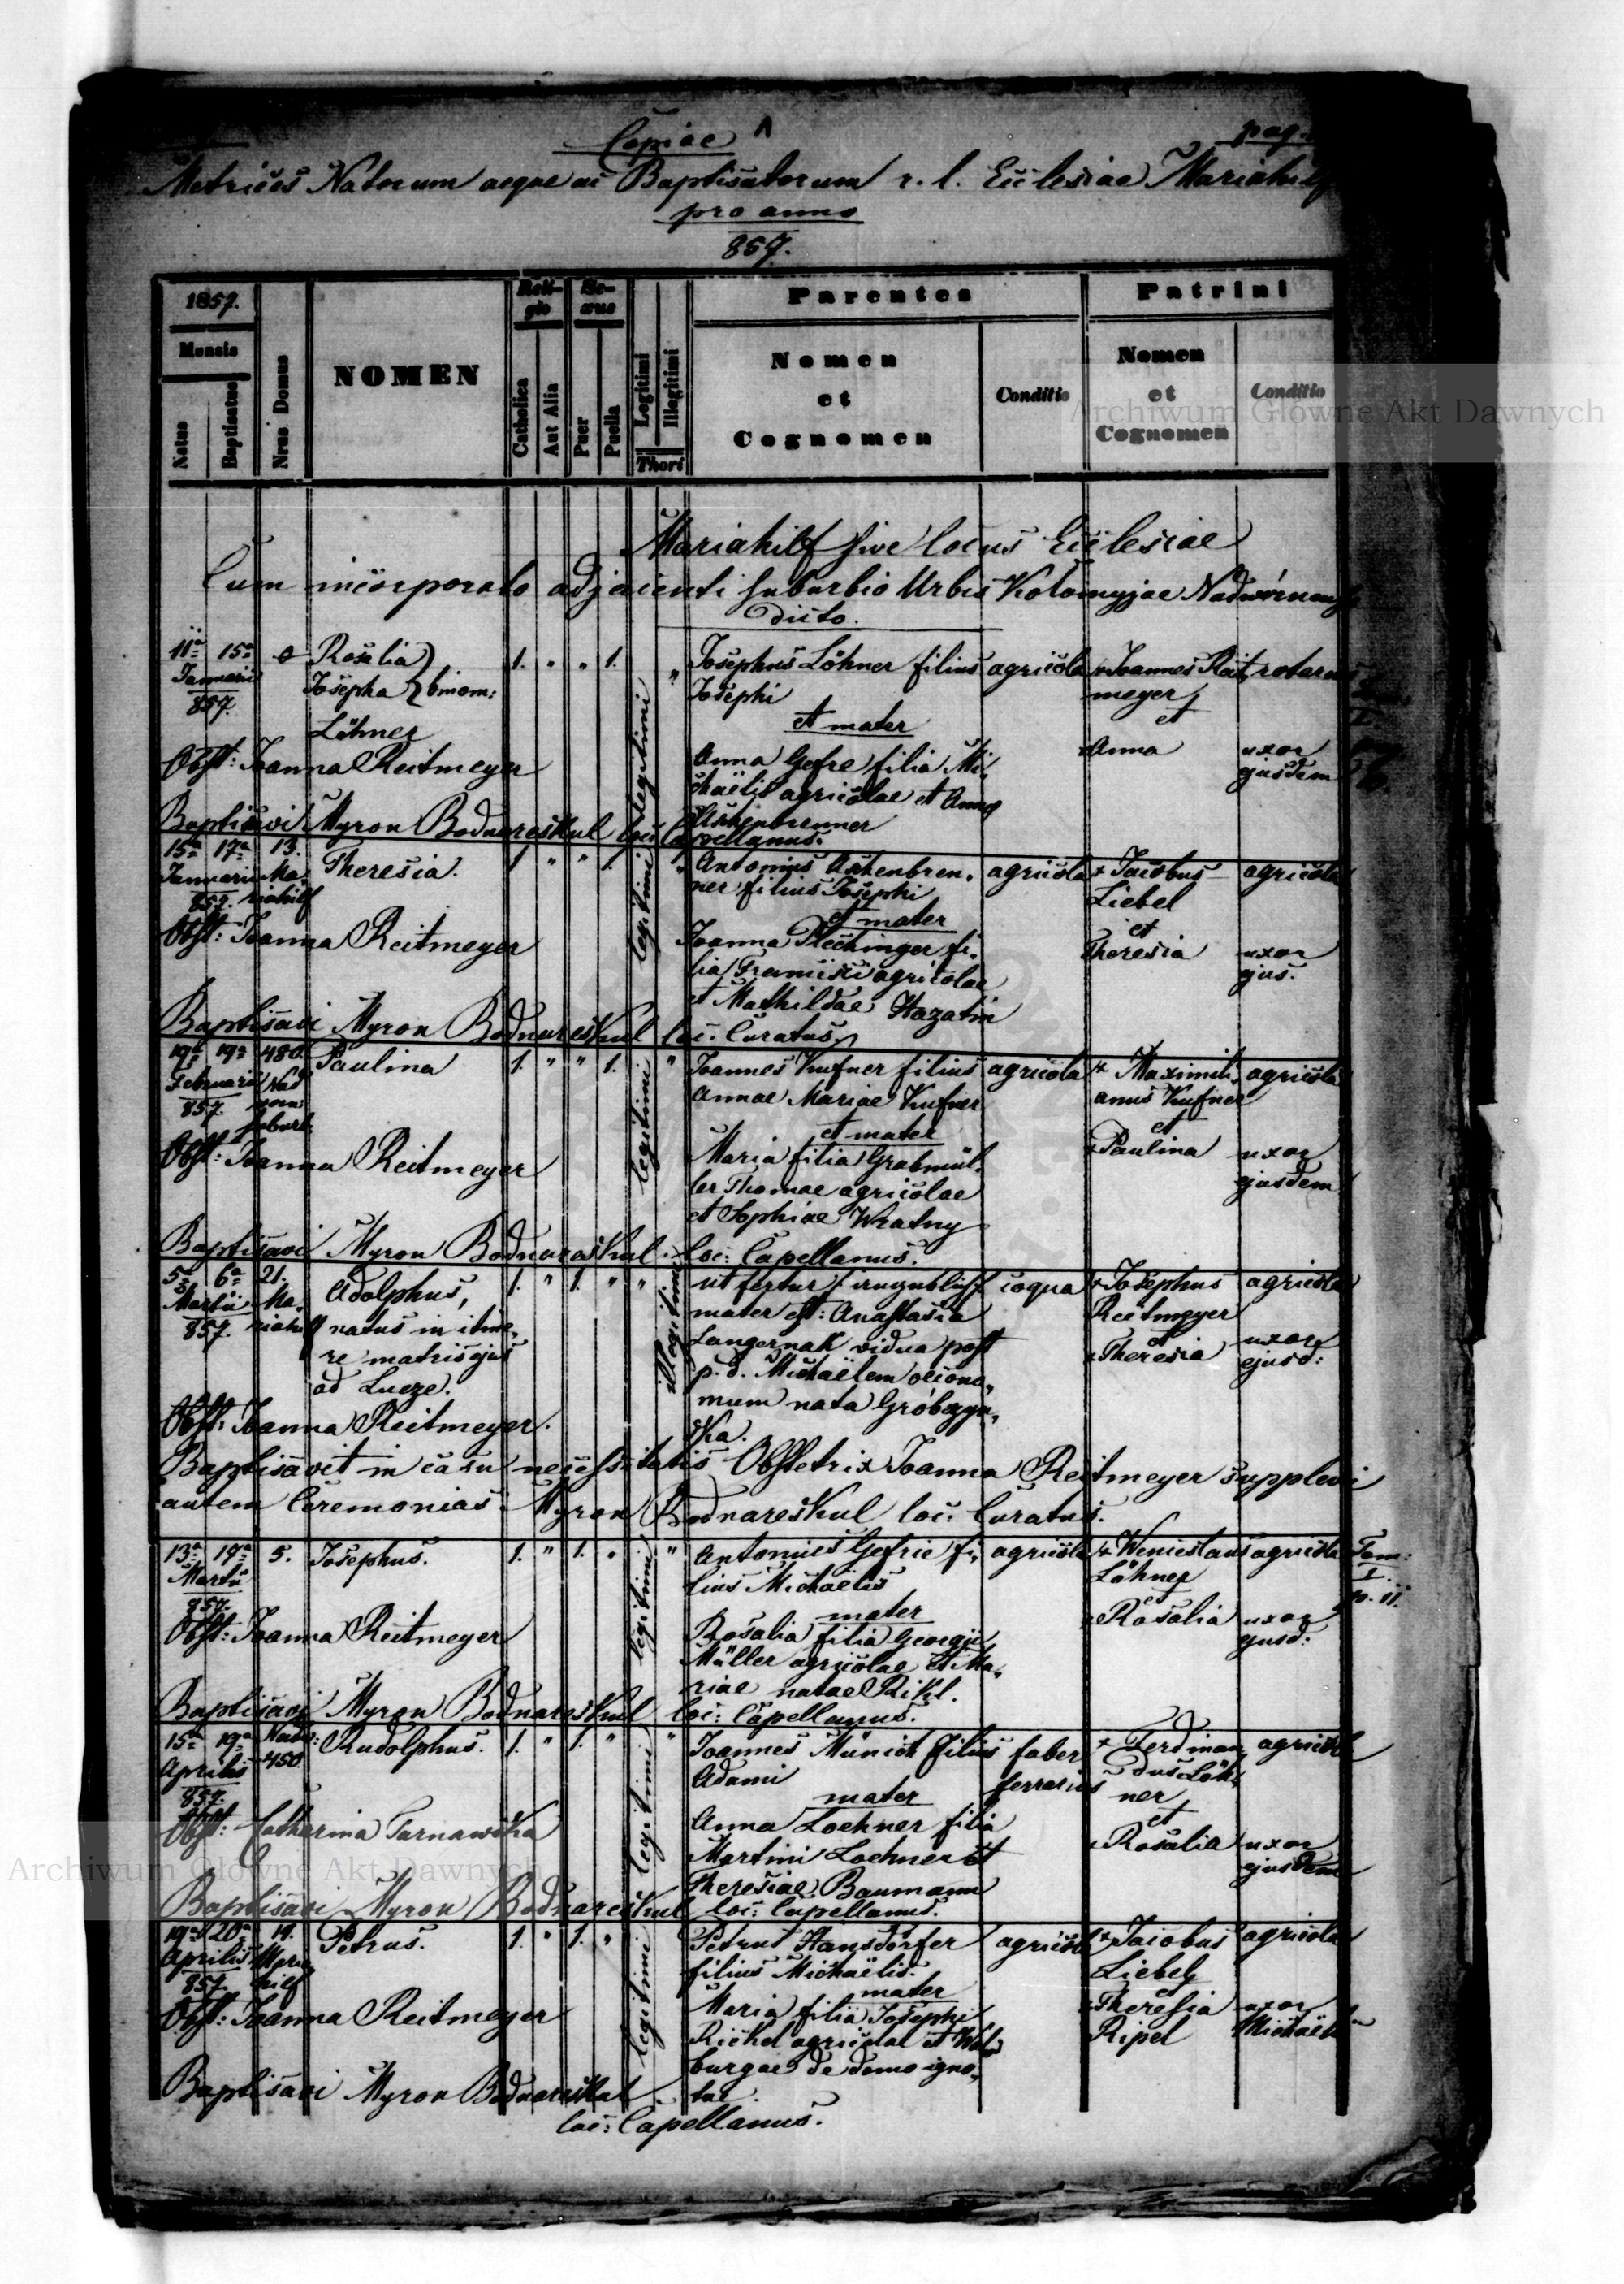 Copiae
pag.
Metrices Natorum aeque ac Baptisatorum r. l. Ecclesiae Mariahilf
pro anno
857.
1857.
Mensis
Natus
Baptisatus
Nrus Domus
NOMEN
Reli-
gio
Catholica
Aut Alia
Se-
xus
Puer
Puella
Legitimi
Illegitimi
Thori
Parentes
Nomen
et
Cognomen
Conditio
Patrini
Nomen
et
Cognomen
Conditio
Archiwum Główne Akt Dawnych
Mariahilf sive locus Ecclesiae
Cum incorporato adjacenti suburbio Urbis Kolomyjae
dicto.
11a 15a 0 Rosalia 1. " " 1. " Josephus Löhner filius agricola Joannes Reit rotarius
Januarii Josepha } binom: Josephi meyer
857. et mater et
Löhner legitimi
Obst: Joanna Reitmeyer Anna Gefre filia Mi Anna uxor
chaëlis agricolae et Annae ejusdem
Aschenbrenner
Baptisavi Myron Bodnareskul loc: Capellanus.
15a 17a 13. Theresia. 1. " " 1. " Antonius Aschenbren agricola Jacobus agricola
Januarii Ma ner filius Josephi Liebel
857. riahilf legitimi et mater et
Obst: Joanna Reitmeyer Joanna Flechinger fi Theresia uxor
lia Francisci agricolae ejus.
et Mathildae Hazatin
Baptisavi Myron Bodnareskul loc: Curatus
19a 19a 480. Paulina 1. " " 1. " Joannes Kufner filius agricola Maximili agricola
Februarii Nad Annae Mariae Kufner anus Kufner
857. worn: legitimi et mater et
suburb.
Obst: Joanna Reitmeyer Maria filia Grabmül Paulina uxor
ler Thomae agricolae ejusdem
et Sophiae Wratny
Baptisavi Myron Bodnareskul loc: Capellanus.
5a 6a 21. Adolphus, 1. " 1. " " ut fertur coqua Josephus agricola
Martii Ma mater est: Anastasia Reitmeyer
857. riahilf natus in itine Illegitimi Langernak vidua post et
re matris ejus p. d. Michaëlem oecono Theresia uxor
ad Lucze. mum nata ejusd:
Obst: Joanna Reitmeyer. ska.
Baptisavit in casu necessitatis Obstetrix Joanna Reitmeyer supplevi
autem Ceremonias Myron Bodnareskul loc: Curatus.
13a 17a 5. Josephus. 1. " 1. " " Antonius Gefrie fi agricola Wenceslaus agricola Tom:
Martii lius Michaëlis Löhner I.
857. legitimi mater et p. 11.
Obst: Joanna Reitmeyer Rosalia filia Georgii Rosalia uxor
Müller agricolae et Ma ejusd:
riae natae Rikl.
Baptisavi Myron Bodnareskul loc: Capellanus.
15a 19a Nadw: Rudolphus. 1. " 1. " " Joannes Münich filius faber Ferdinan agricola
Aprilis 450 Adami ferrarius dus Löh
857. legitimi mater ner
et
Obst: Catharina Tarnawska Anna Loehner filia Rosalia uxor
Martini Loehner et ejusdem
Theresiae Baumann
Archiwum Główne Akt Dawnych
Baptisavi Myron Bodnareskul loc: Capellanus.
19a 20a 19. Petrus. 1. " 1. " Petrus Hansdorfer agricola Jacobus agricola
Aprilis Maria filius Michaëlis. Liebel
857. hilf legitimi mater et
Obst: Joanna Reitmeyer Maria filia Josephi Theresia uxor
Richel agricolae et Wal Ripel Michaëlis
burgae de domo igno
tae.
Baptisavi Myron Bodnareskul
loc: Capellanus.